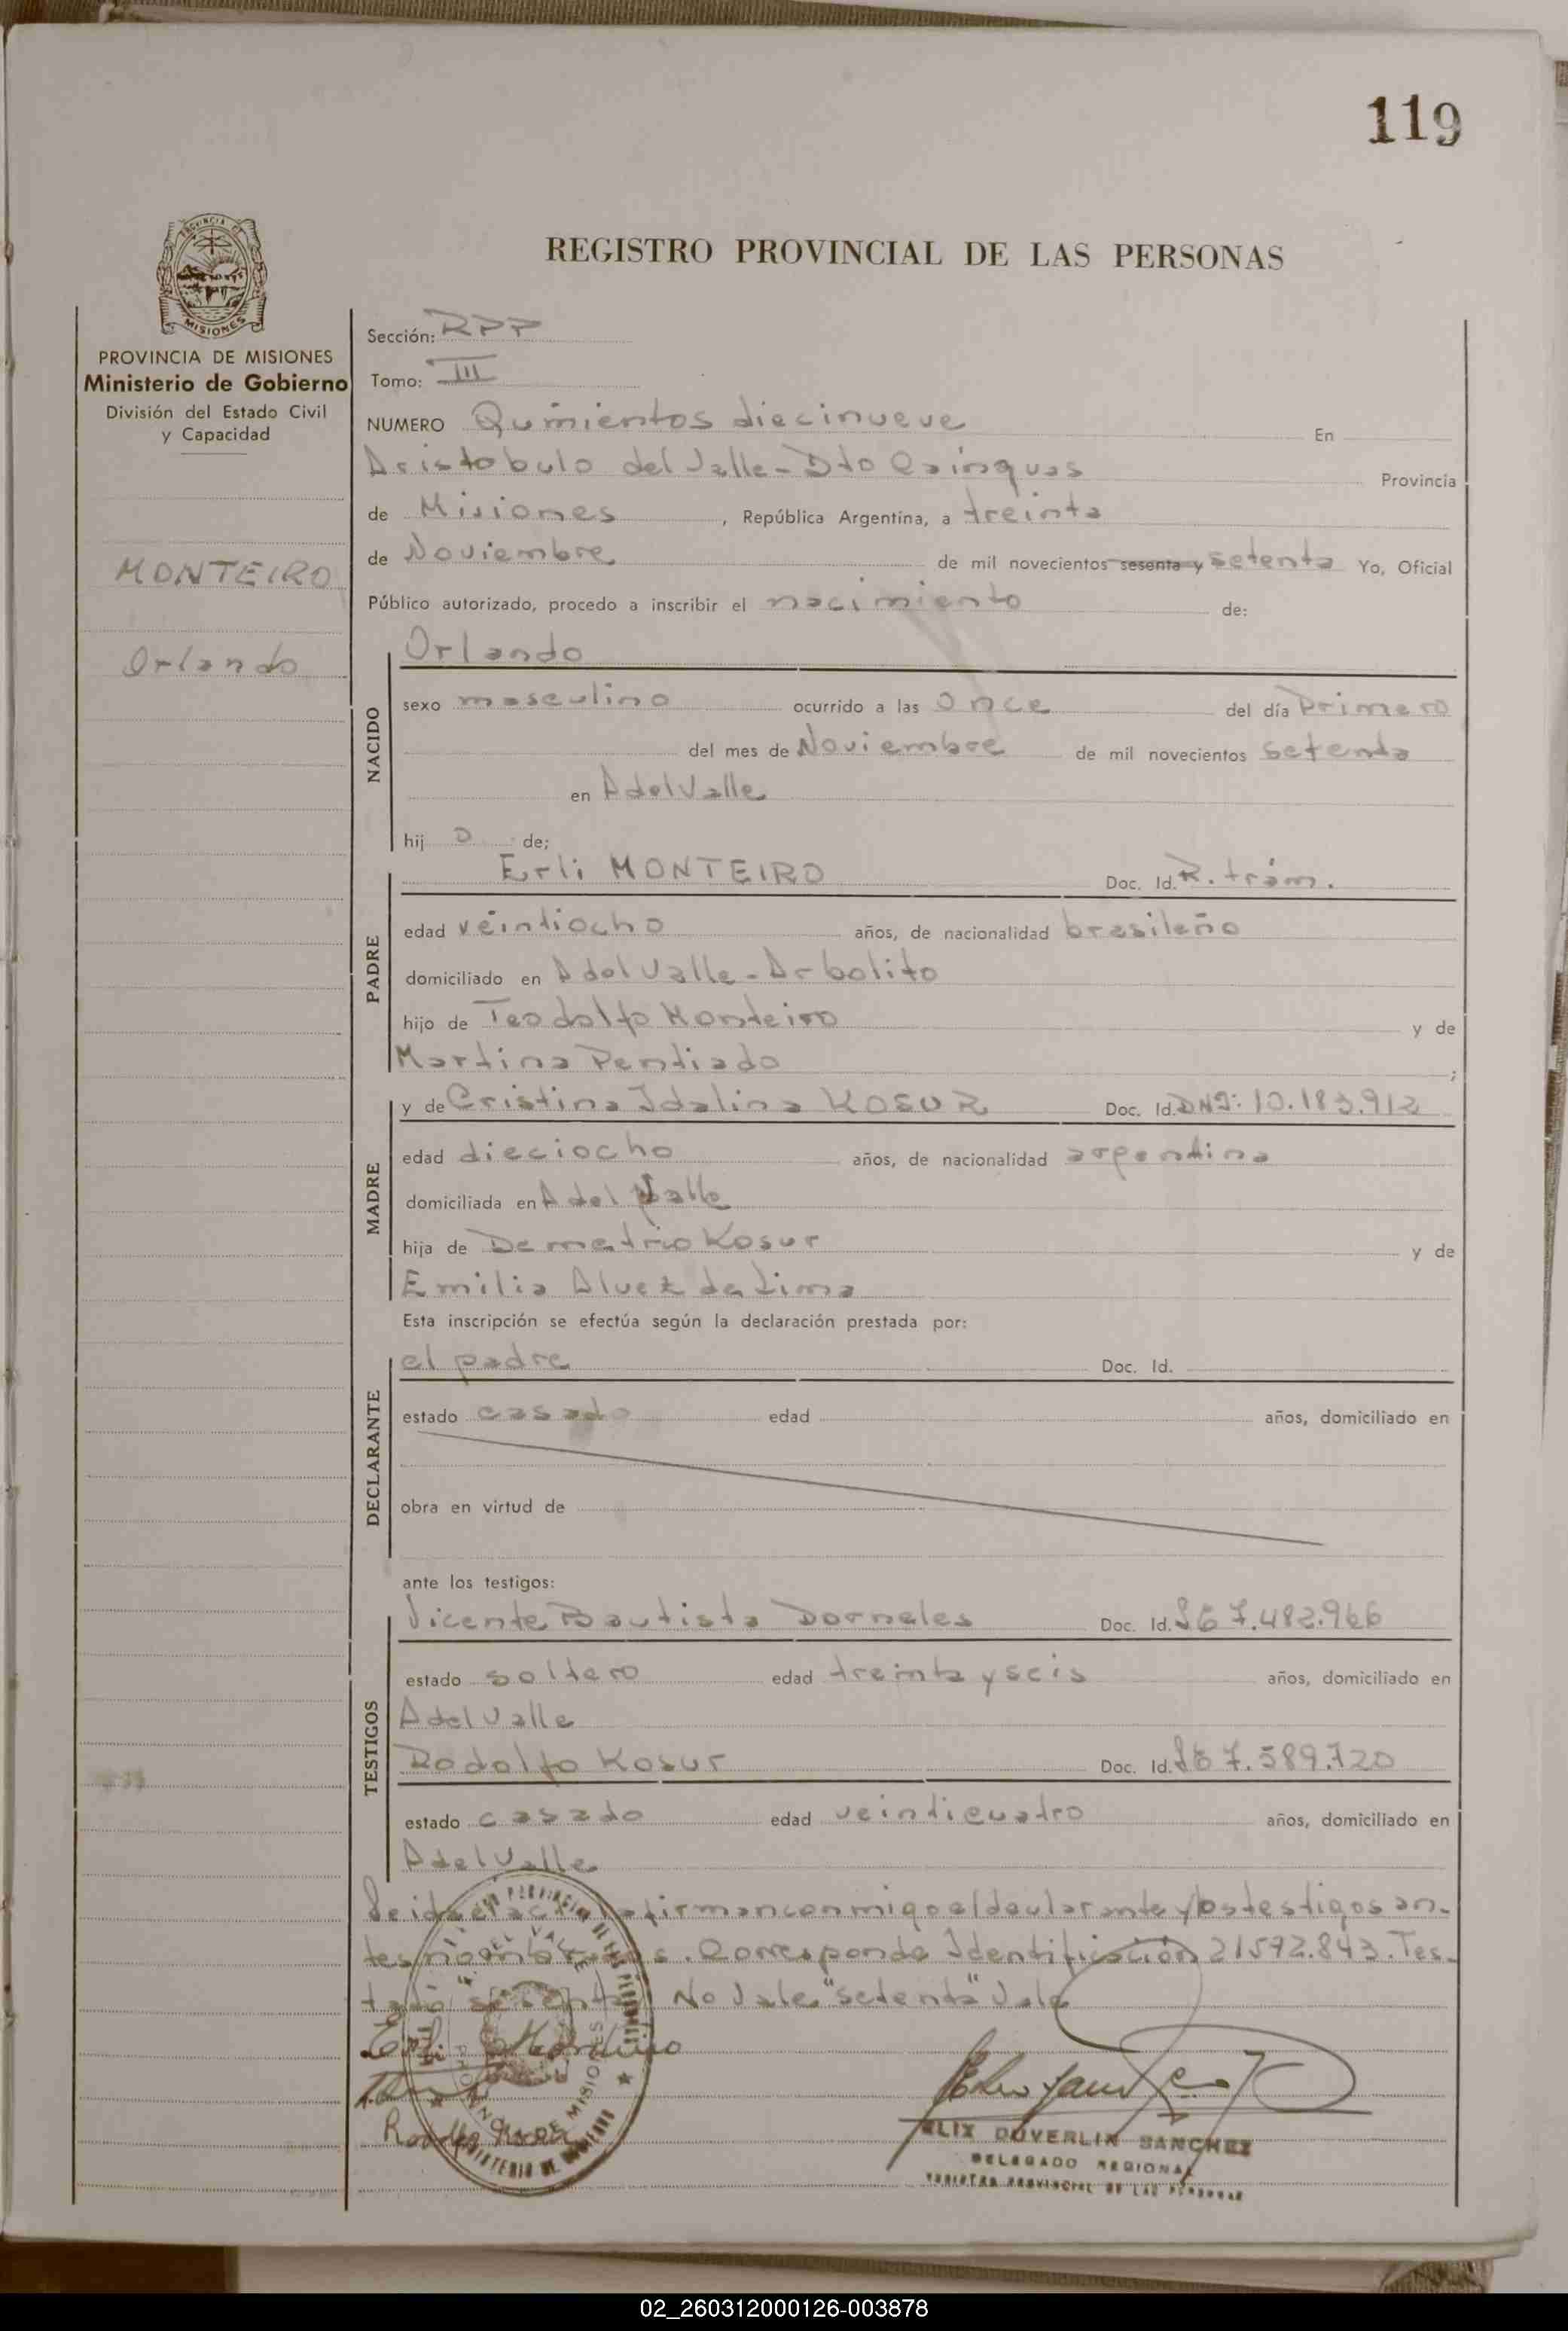 119
REGISTRO PROVINCIAL DE LAS PERSONAS
PROVINCIA DE MISIONES
Ministerio de Gobierno
División del Estado Civil
y Capacidad
MONTEIRO
Orlando
Sección: RPP
Tomo: III
NUMERO Quinientos diecinueve En
Aristobulo del Valle - Dto Cainguas Provincia
de Misiones, República Argentina, a treinta
de Noviembre de mil novecientos sesenta y setenta Yo, Oficial
Público autorizado, procedo a inscribir el nacimiento de:
NACIDO
Orlando
sexo masculino ocurrido a las once del día Primero
del mes de Noviembre de mil novecientos setenta
en Adel Valle
hij o de;
PADRE
Erli MONTEIRO Doc. Id. R. trám.
edad veintiocho años, de nacionalidad brasileño
domiciliado en Adel Valle - Arbolito
hijo de Teodolfo Monteiro y de
Martina Pentiado ;
MADRE
y de Cristina Idalina KOSUR Doc. Id. DNI: 10.183.912
edad dieciocho años, de nacionalidad argentina
domiciliada en Adel Valle
hija de Demetrio Kosur y de
Emilia Alvez de Lima
Esta inscripción se efectúa según la declaración prestada por:
DECLARANTE
el padre Doc. Id.
estado casado edad años, domiciliado en
obra en virtud de
ante los testigos:
TESTIGOS
Vicente Bautista Dorneles Doc. Id. LE 7.482.966
estado soltero edad treinta y seis años, domiciliado en
Adel Valle
Rodolfo Kosur Doc. Id. LE 7.589.720
estado casado edad veinticuatro años, domiciliado en
Adel Valle
Leida el acta la firman conmigo el declarante y los testigos an-
tes nombrados. Corresponde Identificación 21592.843. Tes-
tado sesenta No Vale "setenta" Vale
Erli Monteiro
FELIX DUVERLIN SANCHEZ
DELEGADO REGIONAL
REGISTRO PROVINCIAL DE LAS PERSONAS
02_260312000126-003878